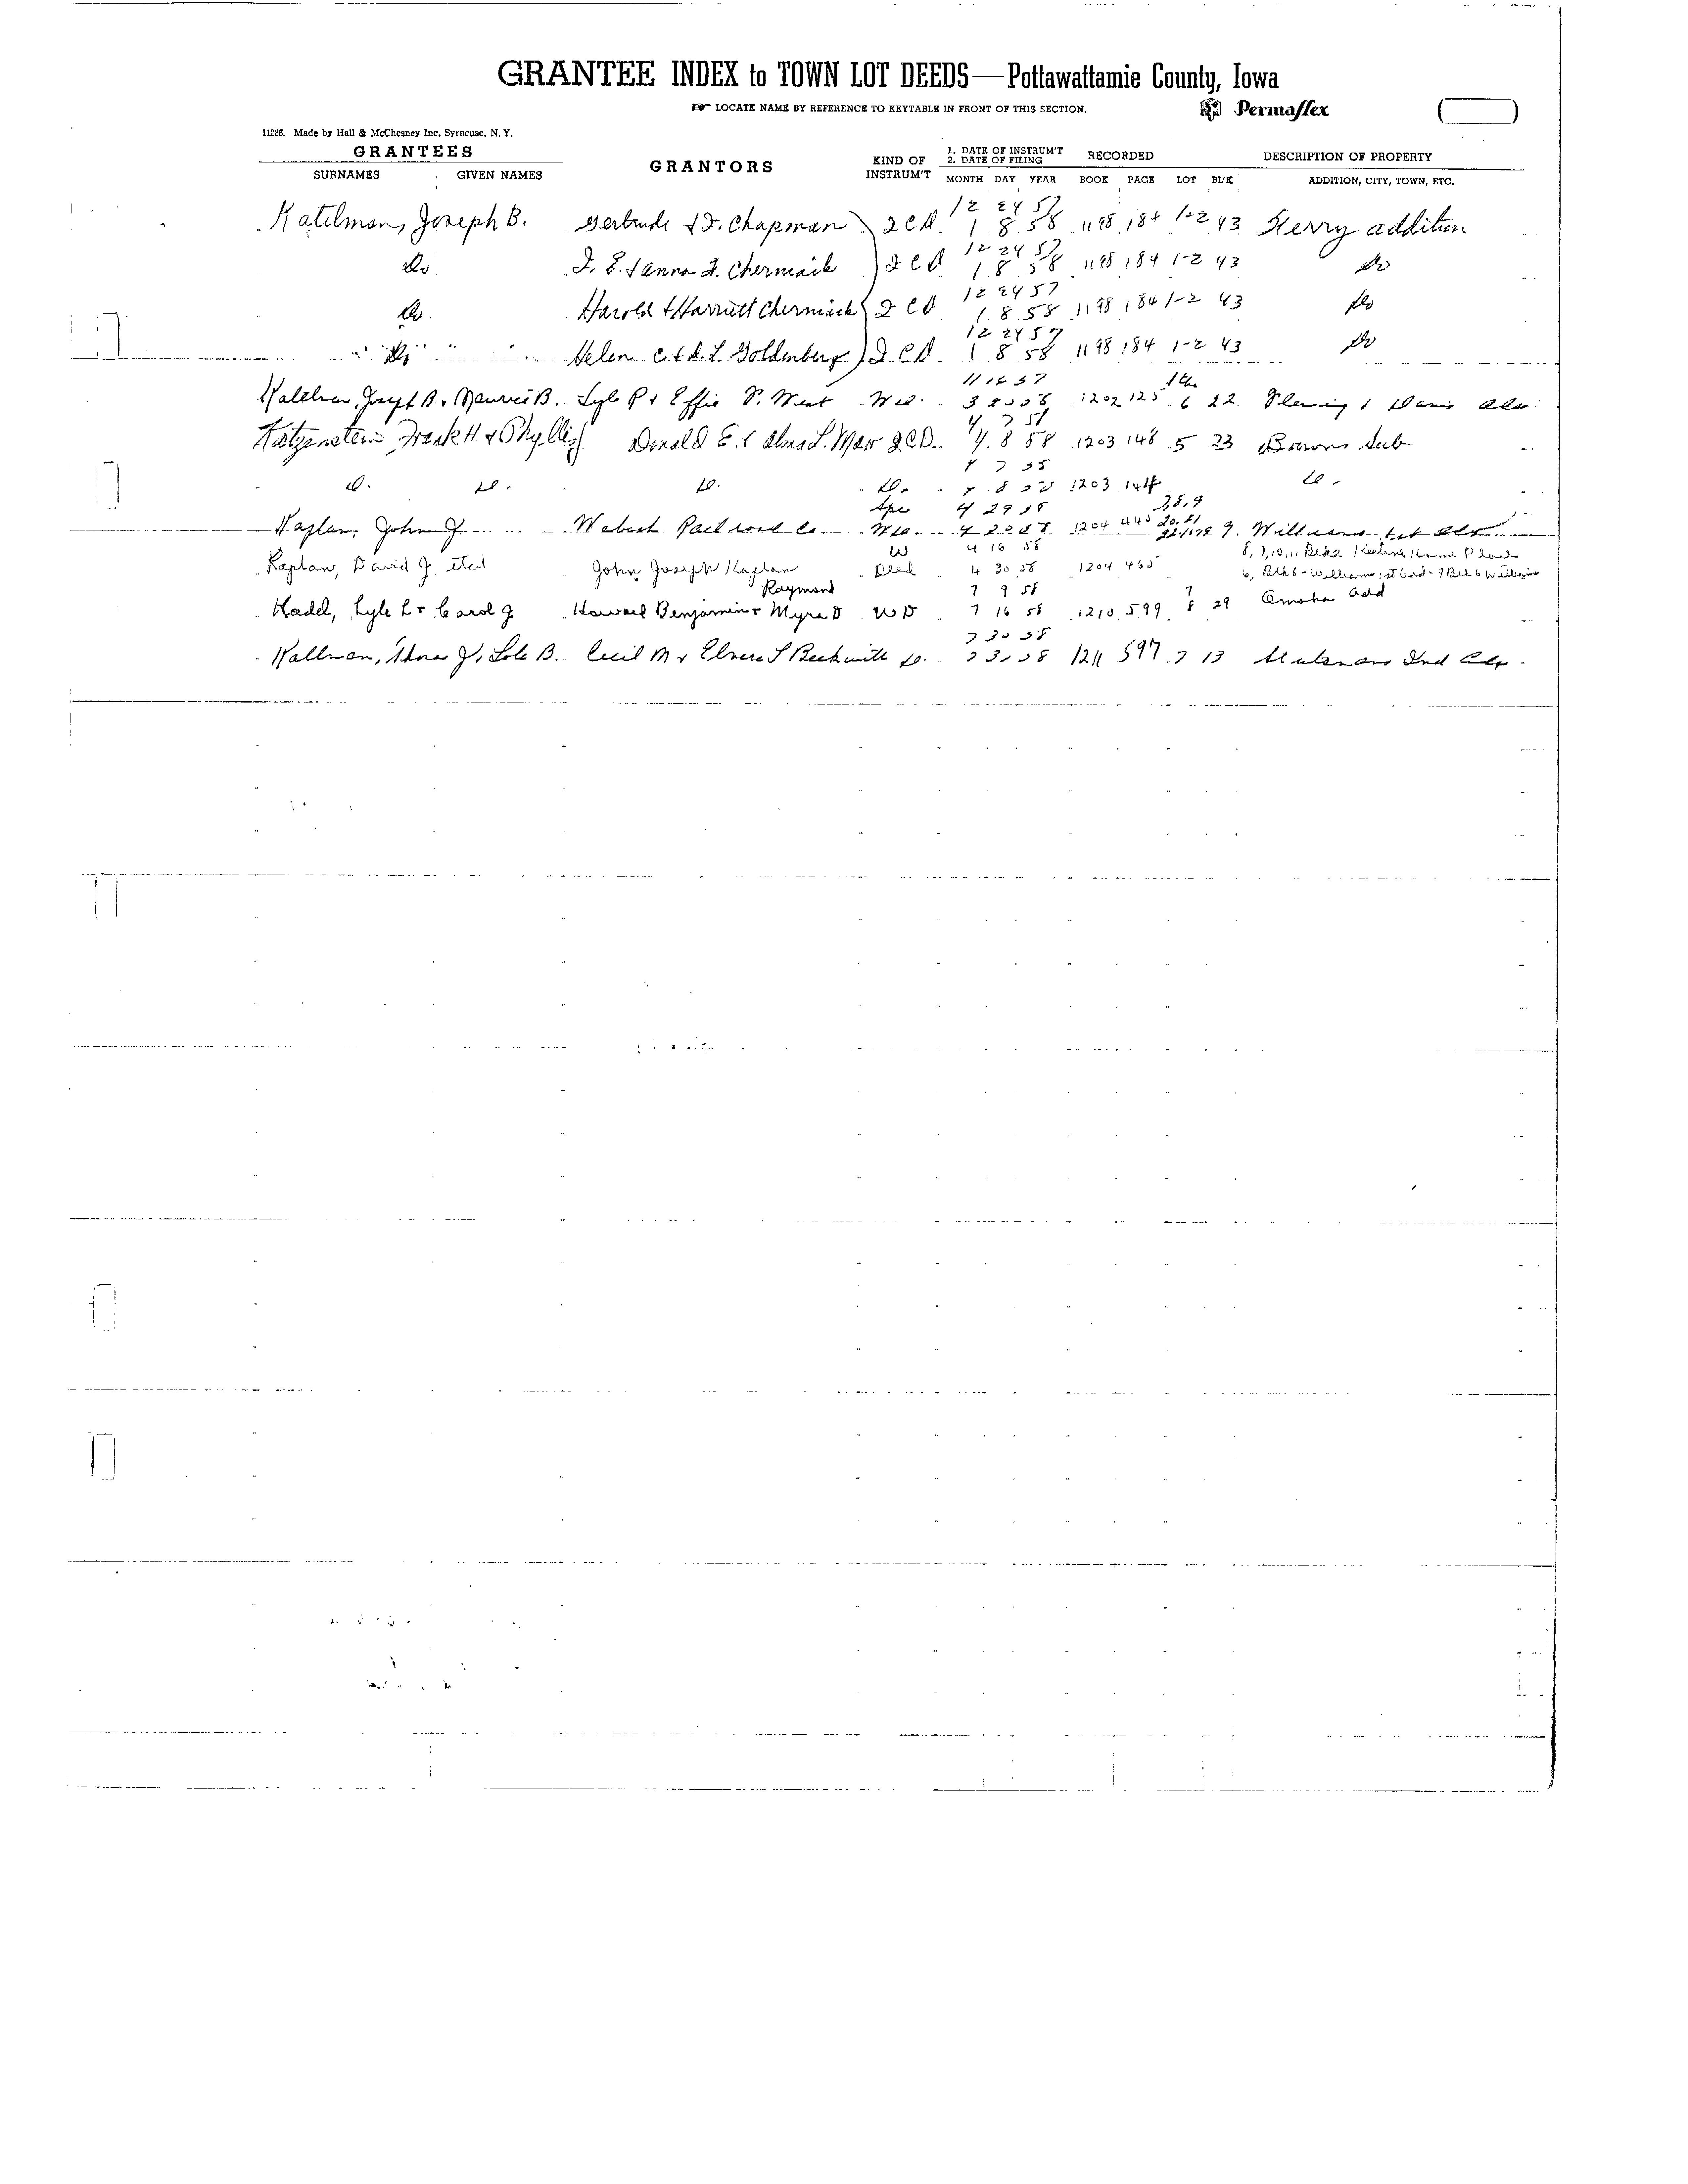 GRANTEE INDEX to TOWN LOT DEEDS—Pottawattamie County, Iowa
LOCATE NAME BY REFERENCE TO KEYTABLE IN FRONT OF THIS SECTION. Permaflex
11286. Made by Hall & McChesney Inc, Syracuse, N. Y.
GRANTEES GRANTORS KIND OF INSTRUM'T 1. DATE OF INSTRUM'T 2. DATE OF FILING RECORDED DESCRIPTION OF PROPERTY
SURNAMES GIVEN NAMES MONTH DAY YEAR BOOK PAGE LOT BL'K ADDITION, CITY, TOWN, ETC.
12 24 57
Katelman, Joseph B. Gertrude & I. Chapman 2 C D. 1 8 58 1198 184 1-2 43 Ferry addition
12 24 57
Do I. E. & Anna F. Chermack 2 C D 1 8 58 1198 184 1-2 43 Do
12 24 57
Do. Harold & Harriett Chermack 2 C D 1 8 58 1198 184 1-2 43 Do
12 24 57
Do Helen C. & L. Goldenberg 2 C D. 1 8 58 1198 184 1-2 43 Do
11 16 57
Katelman, Joseph B. & Maurice B. Lyle P & Effie P. West WD. 1202 125 6 22 Fleming & Davis Add.
4 7
Katzenstein, Frank H. & Phyllis J. Donald E. & Alma L. 2 C D. 4 8 58 1203 148 5 23 Browns Sub
4 7 58
D. D. D. D. 4 8 58 1203 144 D.
Spe 4 29 58 7,8,9
Kaplan, John J. Wabash Railroad Co. WD. 1204 445 20,21 9 Williams 1st Add
W 4 16 58 8, 9, 10, 11 Blk 2
Kaplan, David J. etal John Joseph Kaplan Deed 4 30 58 1204 465 6, Blk 6 - Williams 1st Add - 9 Blk 6 Williams
Raymond 7 9 58 7
Kadel, Lyle L & Carol J Howard Benjamin & Myra D WD 7 16 58 1210 599 8 29 Omaha Add
7 30 58
Kallman, J. & Lola B. Cecil M & S Beckwith D. 7 31 58 1211 597 7 13 2nd Add.